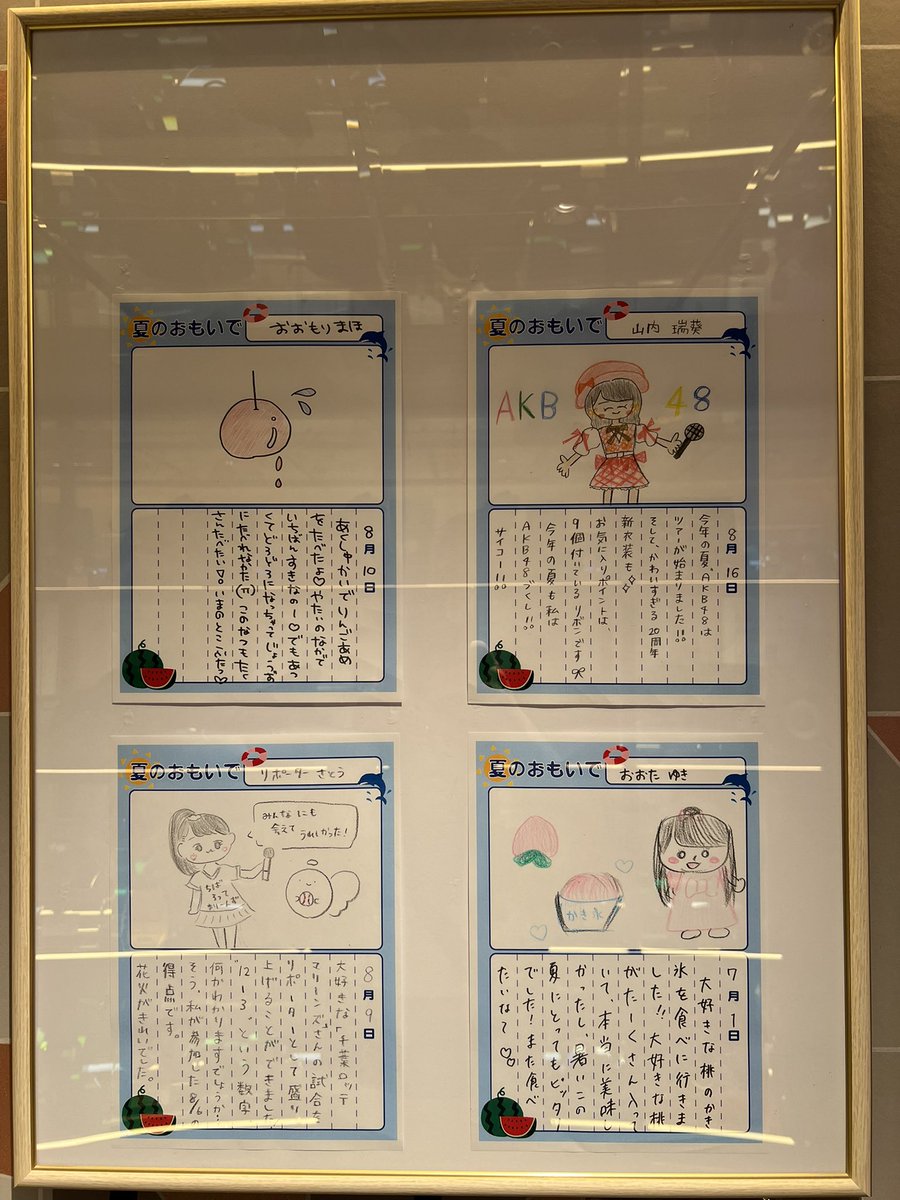 夏のおもいで
おおもり まほ
8月10日
あくしゅかいでりんごあめ
をたべたよ♡やたいのなかで
いちばんすきなの-♡でもあっ
くてどろどろになっちゃってじょうず
にたべれなかた
このなつもたく
さんたべたい
夏のおもいで
山内 瑞葵
AKB 48
8月16日
今年の夏、AKB48は
ツアーが始まりました!!
そして、かわいすぎる 20周年
新衣装も✧
お気に入りポイントは、
9個付いている リボンです
今年の夏も私は
AKB48づくし!!
サイコー!!
夏のおもいで
リポーター さとう
みんなにも
会えて うれしかった!
ちば
ろって
まりーんず
8月9日
大好きな「千葉ロッテ
マリーンズ」さんの試合を
リポーターとして盛り
上げることができました!
"12-3"という数字
何かわかりますでしょうか?
そう、私が参加した8/6の
得点です。
花火がきれいでした。
夏のおもいで
おおた ゆき
かき氷
7月1日
大好きな桃のかき
氷を食べに行きま
した!! 大好きな桃
がたーくさん入って
いて、本当に美味し
かったし、暑いこの
夏にとってもピッタリ
でした!また食べ
たいな〜♡